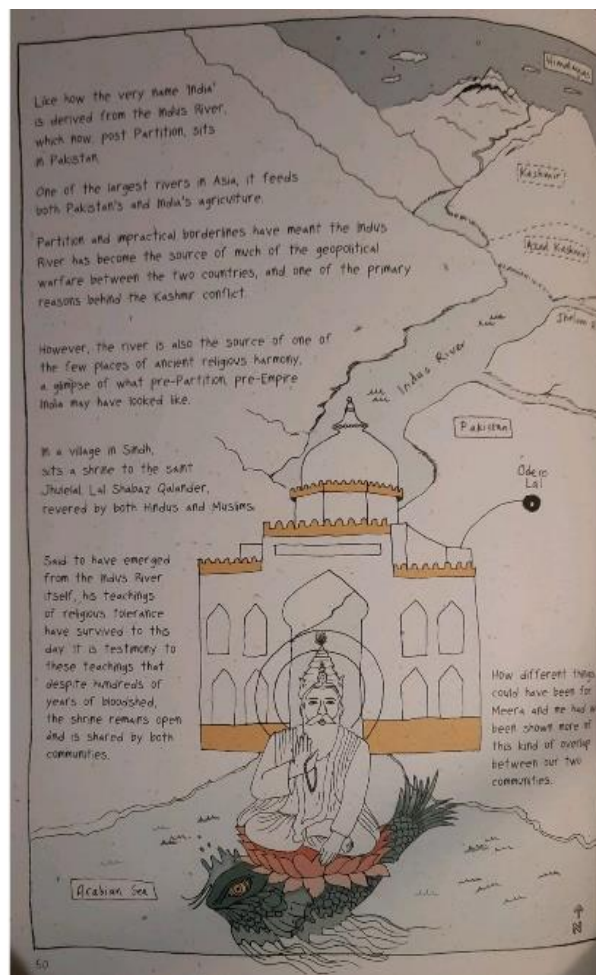 Like how the very name 'India'
is derived from the Indus River,
which now, post Partition, sits
in Pakistan.
One of the largest rivers in Asia, it feeds
both Pakistan's and India's agriculture.
Partition and impractical borderlines have meant the Indus
River has become the source of much of the geopolitical
warfare between the two countries, and one of the primary
reasons behind the Kashmir conflict.
However, the river is also the source of one of
the few places of ancient religious harmony,
a glimpse of what pre-Partition, pre-Empire
India may have looked like.
In a village in Sindh,
sits a shrine to the saint
Jhulelal Lal Shabaz Qalander,
revered by both Hindus and Muslims.
Said to have emerged
from the Indus River
itself, his teachings
of religious tolerance
have survived to this
day. It is testimony to
these teachings that
despite hundreds of
years of bloodshed,
the shrine remains open
and is shared by both
communities.
Himalayas
Kashmir
Azad Kashmir
Jhelum R
Indus River
Pakistan
Odero
Lal
How different things
could have been for
Meera and me had w
been shown more of
this kind of overlap
between our two
communities.
Arabian Sea
N
50